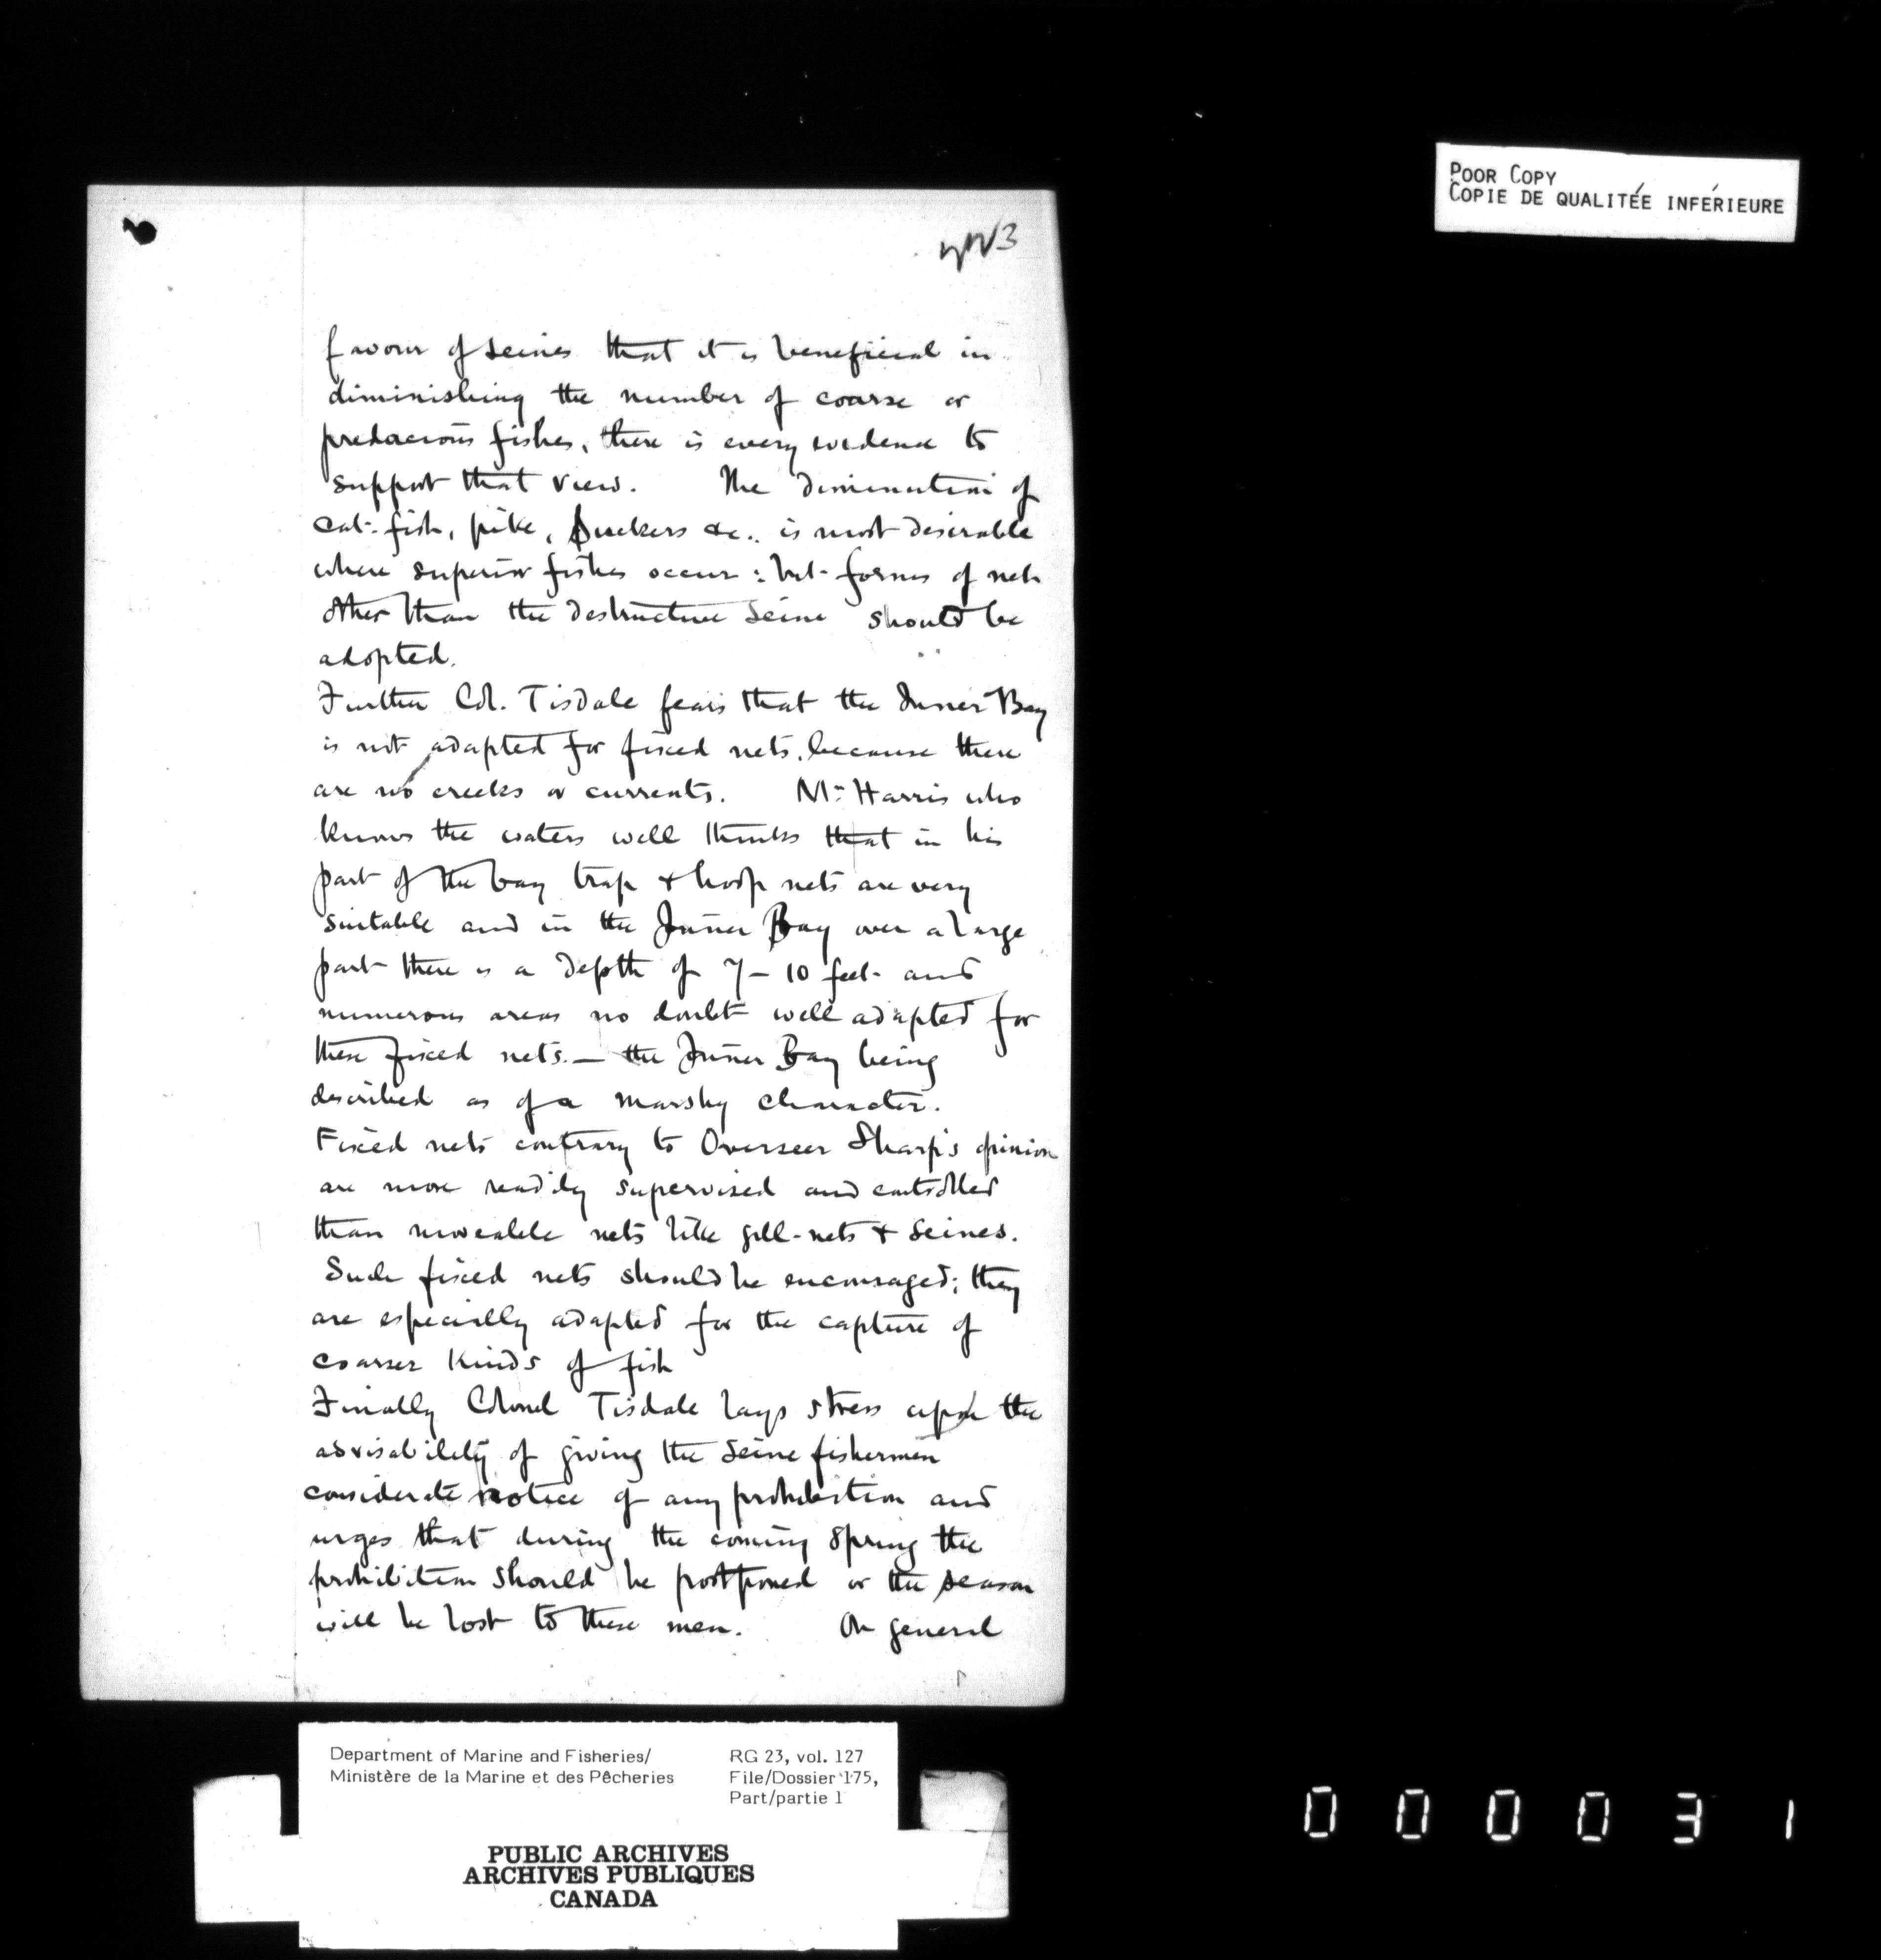 POOR COPY
COPIE DE QUALITÉE INFÉRIEURE
3
favour of seines that it is beneficial in
diminishing the number of coarse or
predacious fishes, there is every evidence to
support that view. The diminution of
cat-fish, pike, Suckers &c.. is most desirable
where superior fishes occur: but forms of nets
other than the destructive seine should be
adopted.
Further Col. Tisdale fears that the Inner Bay
is not adapted for fixed nets, because there
are no creeks or currents. Mr Harris who
knows the waters well thinks that in his
part of the bay trap & hoop nets are very
suitable and in the Inner Bay over a large
part there is a depth of 7-10 feet and
numerous areas no doubt well adapted for
these fixed nets.— the Inner Bay being
described as of a marshy character.
Fixed nets contrary to Overseer Sharp's opinion
are more readily supervised and controlled
than moveable nets like gill-nets & seines.
Such fixed nets should be encouraged; they
are especially adapted for the capture of
coarser kinds of fish
Finally Colonel Tisdale lays stress upon the
advisability of giving the seine fishermen
considerate notice of any prohibition and
urges that during the coming spring the
prohibition should be postponed or the season
will be lost to these men. On general
Department of Marine and Fisheries/
Ministère de la Marine et des Pêcheries
RG 23, vol. 127
File/Dossier 175,
Part/partie 1
PUBLIC ARCHIVES
ARCHIVES PUBLIQUES
CANADA
000031